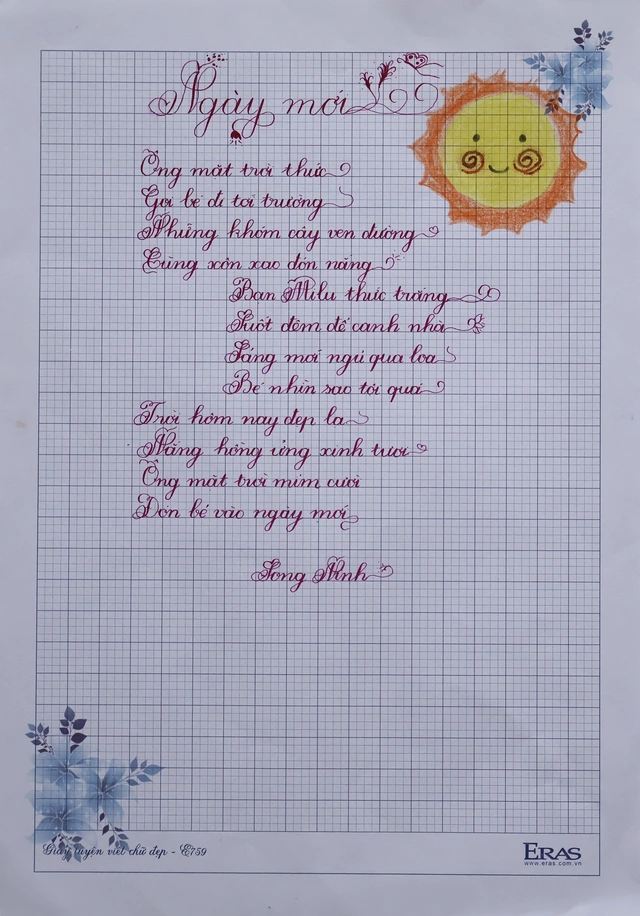 Ngày mới
Ông mặt trời thức
Gọi bé đi tới trường
Những khóm cây ven đường
Cũng xôn xao đón nắng
Bạn Milu thức trắng
Suốt đêm để canh nhà
Sáng mới ngủ qua loa
Bé nhìn sao tội quá
Trời hôm nay đẹp lạ
Nắng hồng ửng xinh tươi
Ông mặt trời mỉm cười
Đón bé vào ngày mới
Song Ninh
Giấy luyện viết chữ đẹp - E759
ERAS
www.eras.com.vn